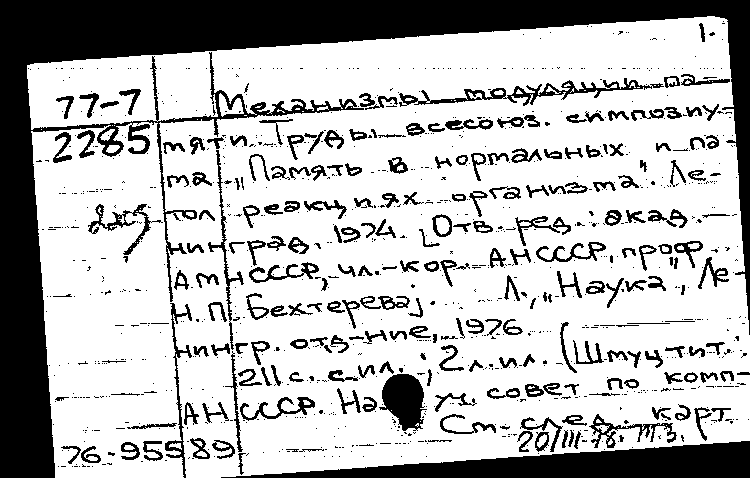 1.
77-7 Механизмы модуляции па-
2285 мяти. Труды всесоюз. симпозиу-
ма „Память в нормальных и па-
2экз тол. реакциях организма". Ле-
нинград. 1974. [Отв. ред.: акад.
АМНСССР, чл.-кор. АНСССР, проф.
Н.П. Бехтерева]. Л., „Наука", Ле-
нингр. отд-ние, 1976.
211 с. с ил.; 2 л. ил. (Шмуцтит.:
АН СССР. На уч. совет по комп-
См. след. карт
76-95589 20/III-78. т.3.